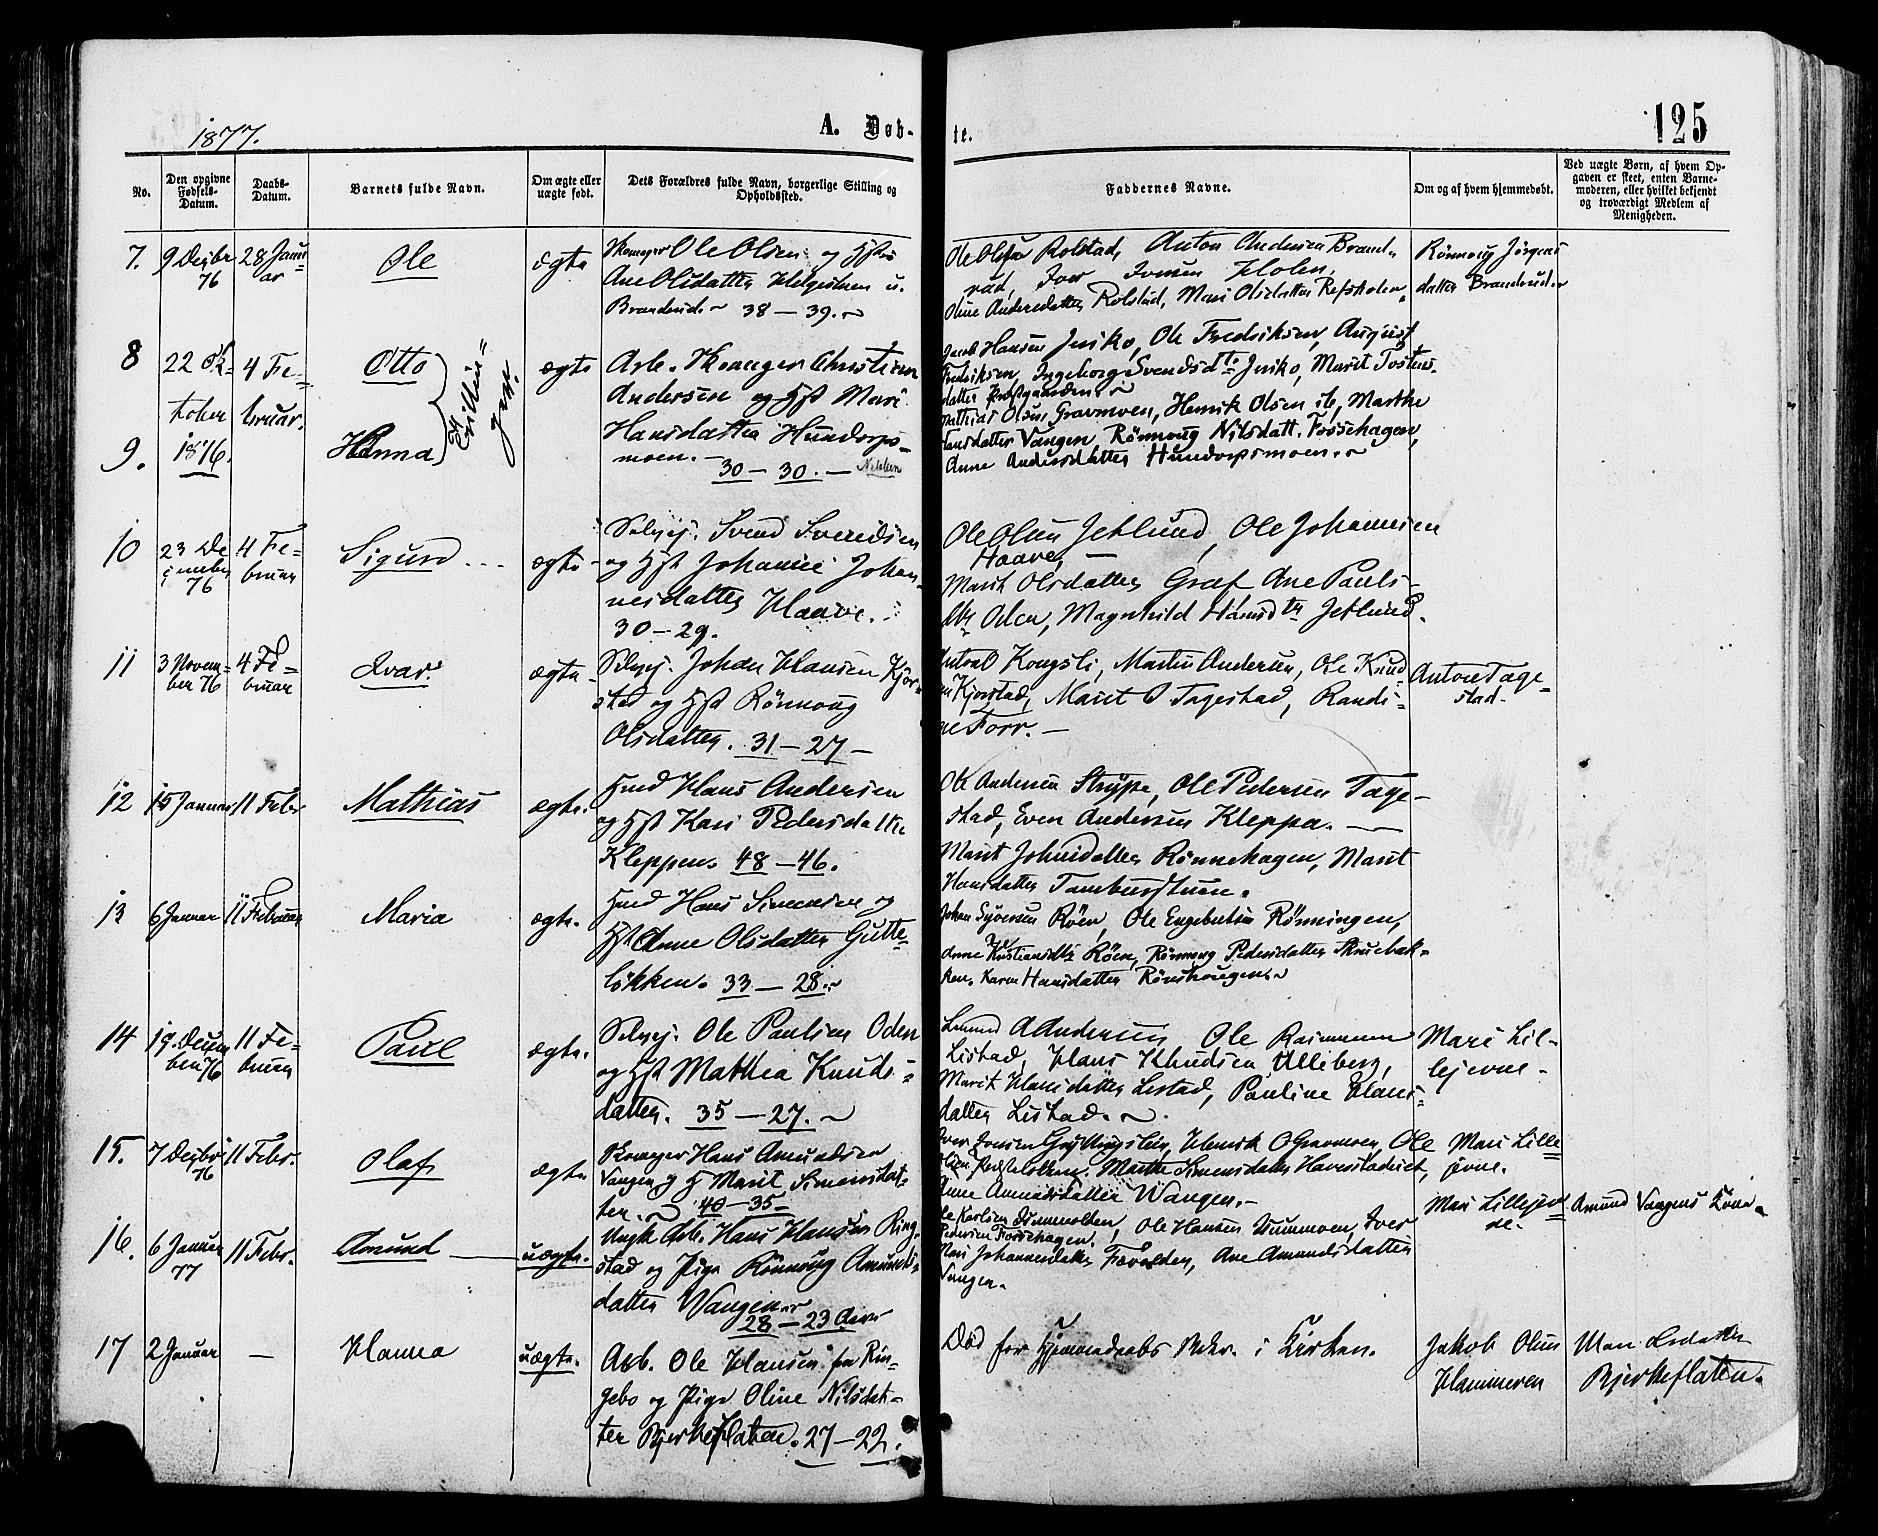 1877.
A. Døb-
te.
125
No.
Den opgivne Fødsels-Datum.
Daabs-Datum.
Barnets fulde Navn.
Om ægte eller uægte født.
Dets Forældres fulde Navn, borgerlige Stilling og Opholdssted.
Faddernes Navne.
Om og af hvem hjemmedøbt.
Ved uægte Børn, af hvem Op-
gaven er skeet, enten Barne-
moderen, eller hvilket bekjendt
og troværdigt Medlem af
Menigheden.
7. 9 Dezbr 76
28 Janu=
ar
Ole
ægte
Ole Olsen og Hstr
Ane Olsdatter u.
Brandrud. 38 - 39.
Ole Olsen Rolstad, Anton Andersen Brand-
rud, Iver Iversen Holen,
Oline Andersdatter Rolstad, Mari Olsdatter
Rønnoug Jørgens
datter Brandrud.
8
9.
22 Ok-
tober
1876.
4 Fe-
bruar.
Otto
Hanna
Tvillin=
ger.
ægte
Arb. Christian
Andersen og Hst Mari
Hansdatter Hundorps=
moen.
30 - 30.
Jacob Hansen Jeriko, Ole Fredriksen, August
Fredriksen, Ingeborg Svendsdtr Jeriko, Marit Tosten-
datter
Mathias Olsen Gravmoen, Henrik Olsen ib, Marthe
Hansdatter Vangen, Rønnoug Nilsdatt. Fossehagen,
Anne Andersdatter Hundorpsmoen.
10
23 De
cember
76
4 Fe-
bruar
Sigurd
ægte
Selvej. Svend Svendsen
og Hst Johanne Johan-
nesdatter Haave.
30-29.
Ole Olsen Jetlund, Ole Johannesen
Haave,
Marit Olsdatter Graf Ane Pauls-
dtr Oden, Magnhild Hansdtr Jetlund.
11
3 Novem-
ber 76
4 Fe-
bruar
Ivar.
ægte
Selvej. Johan Hansen Kjor-
stad og Hst Rønnoug
Olsdatter. 31 - 27 -
Kongsli, Martin Andersen, Ole Knud-
sen Kjorstad, Marit O Tagestad, Randi-
ne Forr.
Anton Tage-
stad.
12
15 Januar
11 Febr
Mathias
ægte.
Hmd Hans Andersen
og Hst Kari Pedersdatter
Kleppen. 48 - 46.
Ole Andersen Strype, Ole Pedersen Tage-
stad, Even Andersen Kleppa.
Marit Johnsdatter Rønnehagen, Marit
Hansdatter Tamburstuen.
13
6 Januar
11 Februar
Maria
ægte.
Hmd Hans Simensen og
Hst Anne Olsdatter Gutte=
løkken. 33 - 28.
Johan Syversen Røen, Ole Engebretsen Rønningen,
Anne Kristiansdtr Røen, Rønnoug Pedersdatter Skuebak-
ken, Karen Hansdatter Rønshougen.
14
19. Decem
ber 76
11 Fe-
bruar
Paul
ægte.
Selvej. Ole Paulsen Oden
og Hst Mathea Knuds-
datter. 35 - 27.
A Andersen, Ole Rasmussen
Listad, Hans Knudsen Ulleberg,
Marit Hansdatter Listad, Pauline Hans-
datter Listad.
Mari Lil-
lejevne
15.
7 Dezbr
76
11 Febr.
Olaf
ægte
Hans Amundsen
Vangen og H Marit Simensdat-
ter. 40 - 35
Iver Iversen, Henrik O Gravmoen, Ole
Marthe Simensdatter
Anne Amundsdatter Wangen.
Mari Lille
jevne.
16.
6 Januar
77
11 Febr.
Amund
uægte.
Ungk Arb. Hans Hansen Ring-
stad og Pige Rønnoug Amunds-
datter Wangen
28 - 23 Aar
Ole Karlsen, Ole Hansen, Iver
Pedersen Fossehagen,
Mari Johannesdatter, Ane Amundsdatter
Vangen.
Mari Lillejev
ne.
Amund Vangens Kone
17
2 Januar
-
Hanna
uægte.
Arb. Ole Hansen fra Rin-
gebo og Pige Oline Nilsdat-
ter Bjerkeflaten. 27 - 22.
Død før i Kirken.
Jakob Olsen
Hammeren
Mari
Bjerkeflaten.